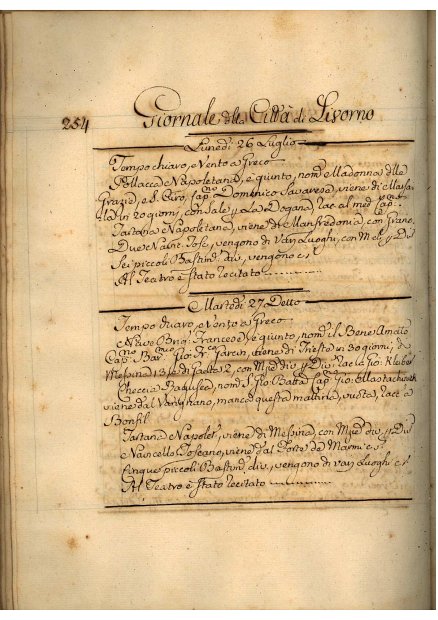 254
Giornale della Città di Livorno
Lunedì 26 Luglio
Tempo chiaro, e Vento a Greco
Pollacca Napoletana, è quinto, nom. Madonna dlle
Grazie, e S. Ciro, Cap.no Domenico Savarese, viene di Marsa
la in 20 giorni, con Sale p La Dogana, Rac. al med. Cap.
Tartana Napoletana, viene di Manfredonia con Grano
Due Navi. Tos., vengono di Varj Luoghi, con Mel. p Div
Sei piccoli Bastim. div. vengono c. s.
Al Teatro è stato recitato
Martedì 27 Detto
Tempo chiaro, e Vento a Greco
Nave Francese, è quinto, nom. il Bene Amato
Cap.no, viene di Trieste in 30 giorni, da
Messina 13, e di Gaeta 2, con Mer div p Div.
Checcia Ragusea, nom. S. Gio Batta Cap.
viene dal Varignano, mancò questa mattina, vuota, rac. a
Bonfil
Tartana Napolet. viene di Messina, con Mer div p Div
Navicello Toscano, viene dal Forte de Marmi c. s.
Cinque piccoli Bastim. div. vengono di varj Luoghi c. s.
Al Teatro è stato recitato